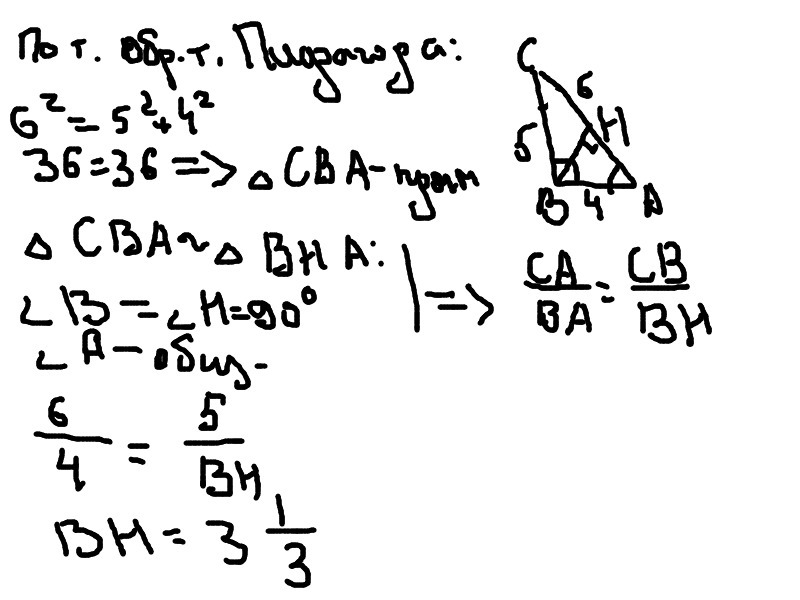 По т. обр. т. Пифагора:
6² = 5² + 4²
36 = 36 => △ CBA - прям
△ CBA ~ △ BHA:
∠B = ∠H = 90°
∠A - общ.
=> CA/BA = CB/BH
6/4 = 5/BH
BH = 3 1/3
C
6
H
5
B 4 A